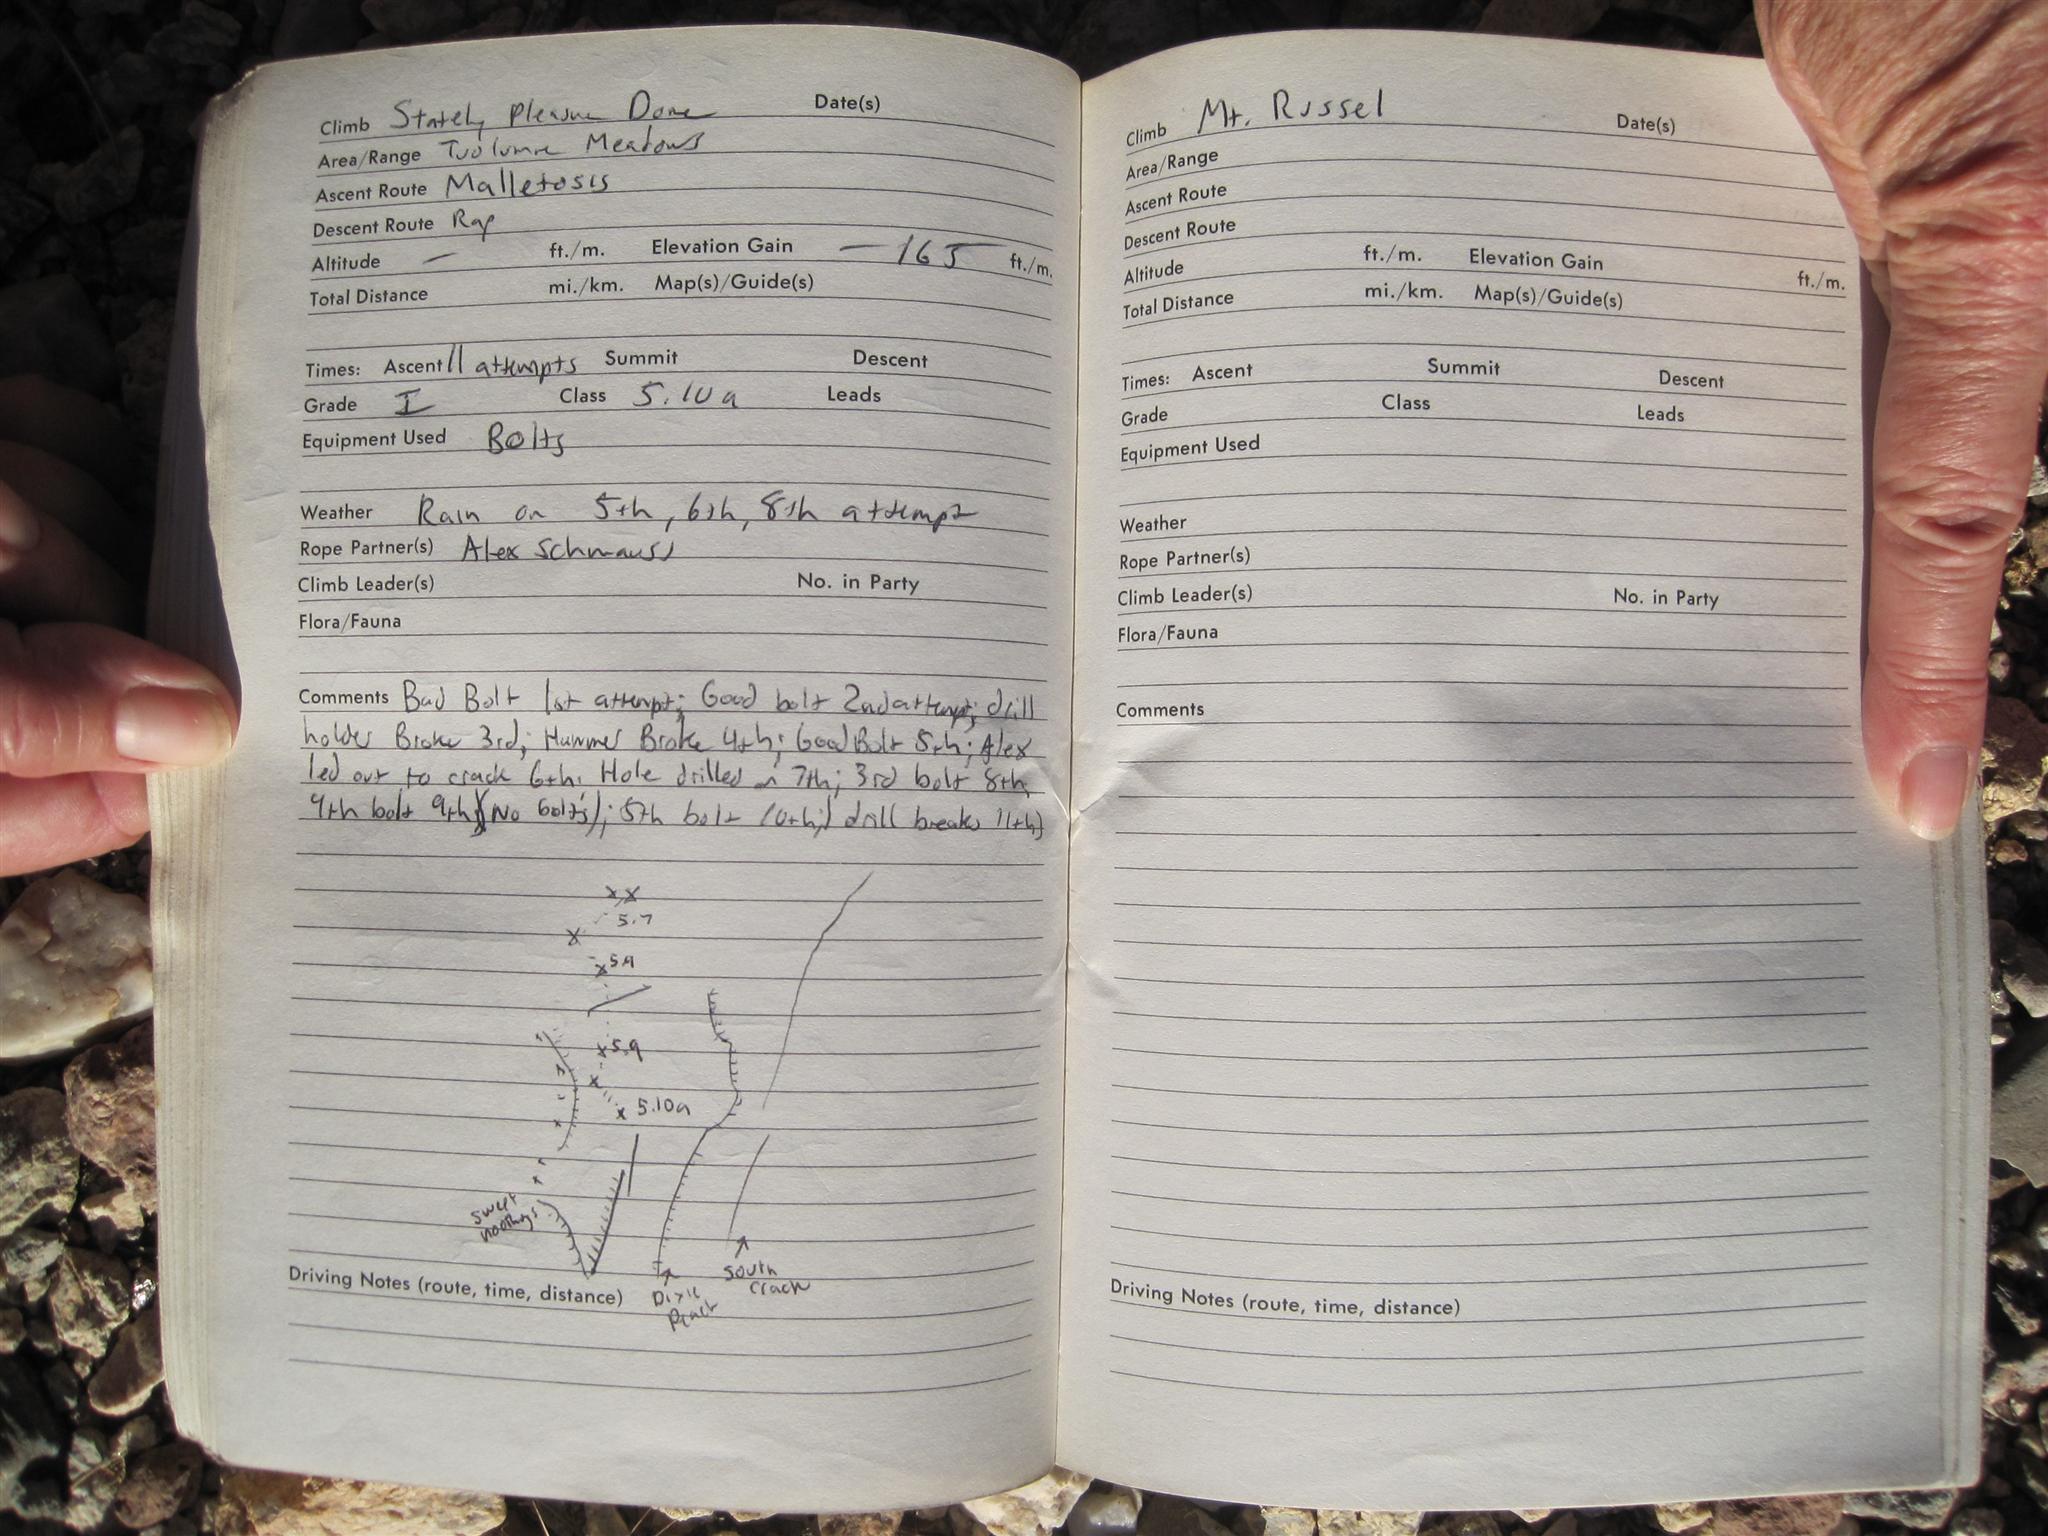 Climb Stately Pleasure Dome Date(s)
Area/Range Tuolumne Meadows
Ascent Route Malletosis
Descent Route Rap
Altitude — ft./m. Elevation Gain — 165 ft./m.
Total Distance mi./km. Map(s)/Guide(s)
Times: Ascent 11 attempts Summit Descent
Grade I Class 5.10a Leads
Equipment Used Bolts
Weather Rain on 5th, 6th, 8th attempt
Rope Partner(s) Alex Schmauss
Climb Leader(s) No. in Party
Flora/Fauna
Comments Bad Bolt 1st attempt; Good bolt 2nd attempt; drill
holder Broke 3rd; Hammer Broke 4th; Good Bolt 5th; Alex
led out to crack 6th; Hole drilled on 7th; 3rd bolt 8th
4th bolt 9th (No bolts); 5th bolt 10th; drill breaks 11th;
x x
5.7
x
x 5.9
x 5.9
x
x 5.10a
Sweet
nothings
South
crack
Dixie
Peach
Driving Notes (route, time, distance)
Climb Mt. Russel Date(s)
Area/Range
Ascent Route
Descent Route
Altitude ft./m. Elevation Gain ft./m.
Total Distance mi./km. Map(s)/Guide(s)
Times: Ascent Summit Descent
Grade Class Leads
Equipment Used
Weather
Rope Partner(s)
Climb Leader(s) No. in Party
Flora/Fauna
Comments
Driving Notes (route, time, distance)